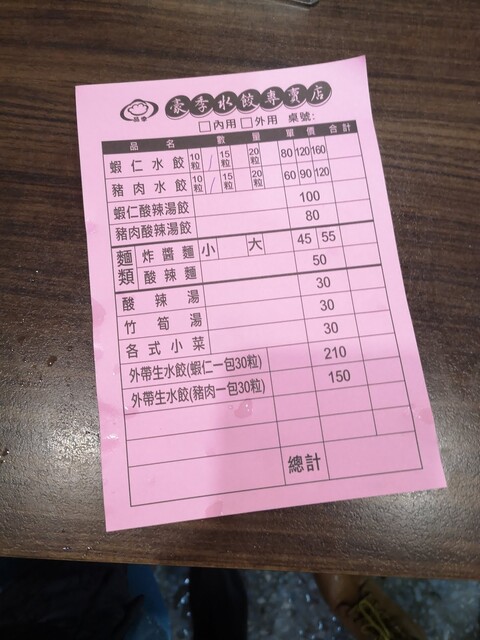 豪季水餃專賣店
□內用 □外用 桌號:
品名 數量 單價 合計
蝦仁水餃 10粒 / 15粒 20粒 80 120 160
豬肉水餃 10粒 / 15粒 20粒 60 90 120
蝦仁酸辣湯餃 100
豬肉酸辣湯餃 80
麵類 炸醬麵 小 大 45 55
酸辣麵 50
酸辣湯 30
竹筍湯 30
各式小菜 30
外帶生水餃(蝦仁一包30粒) 210
外帶生水餃(豬肉一包30粒) 150
總計